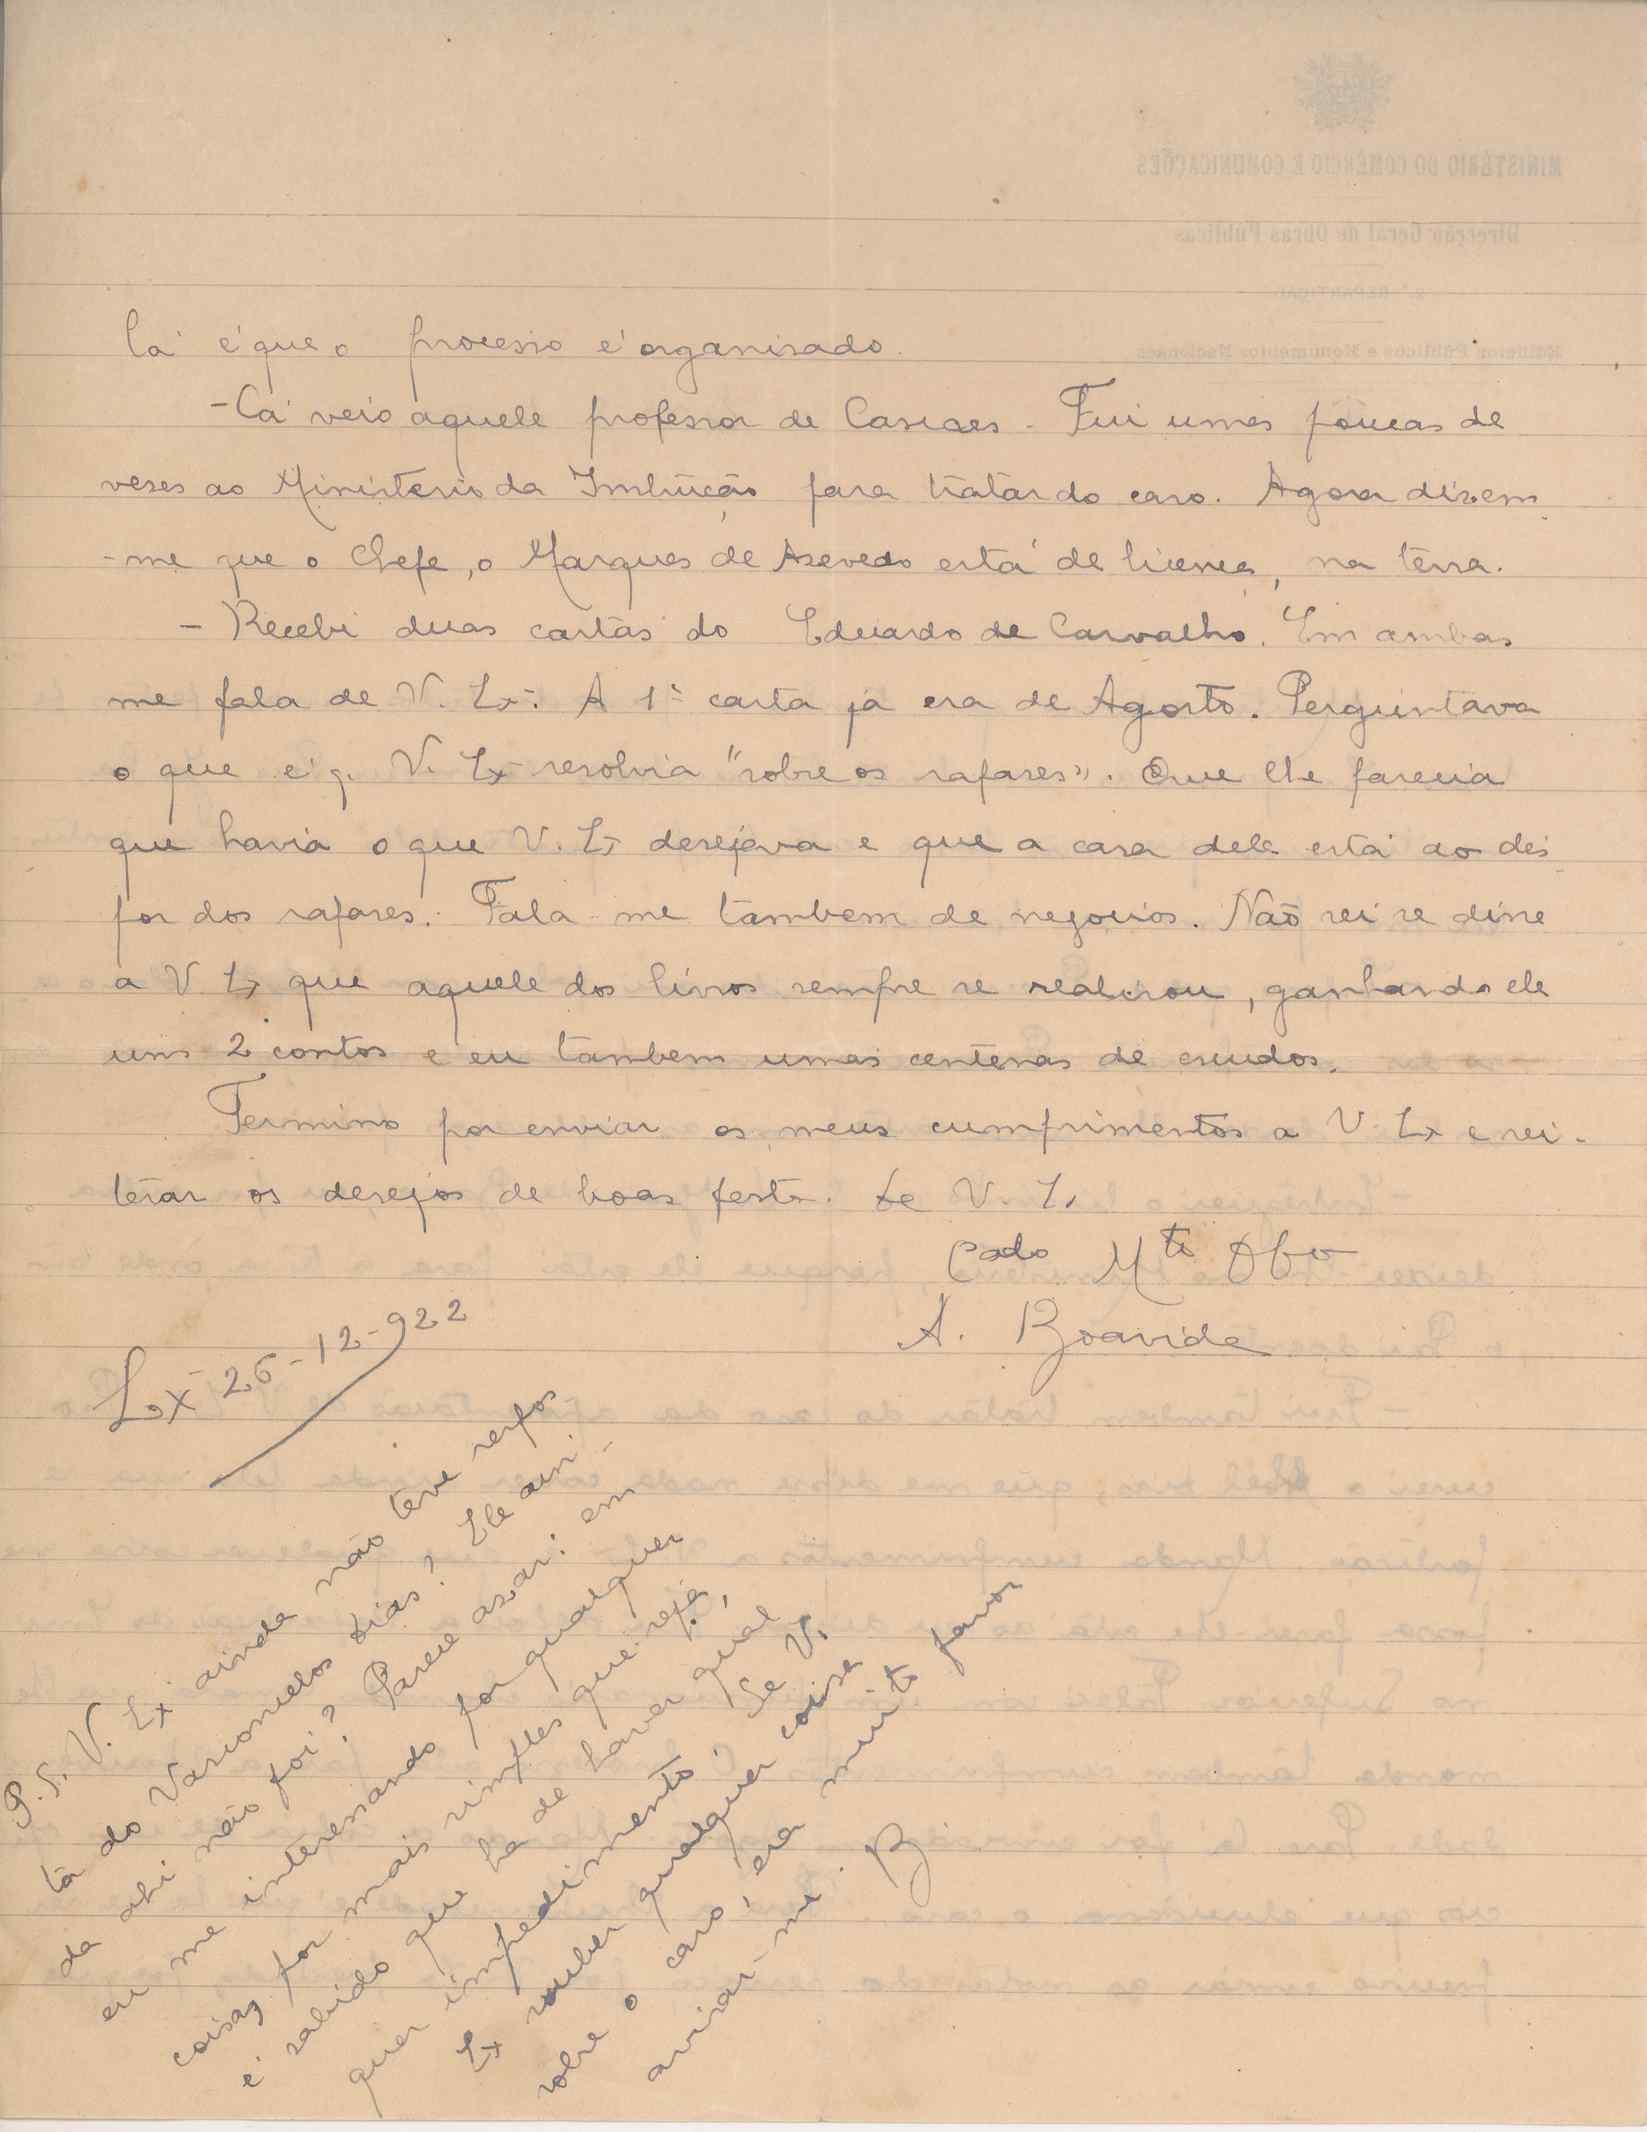 lá é que o processo é organisado.
- Cá veio aquele professor de Cascaes. Fui umas poucas de
veses ao Ministerio da Instrução para tratar do caso. Agora dizem
-me que o Chefe, o Marques de Asevedo está de licença, na terra.
- Recebi duas cartas do Eduardo de Carvalho. Em ambas
me fala de V. Ex.ª A 1ª carta já era de Agosto. Perguntava
o que é q. V. Ex resolvia "sobre os rapases". Que lhe parecia
que havia o que V. Ex desejava e que a casa dele está ao dis
por dos rapases. Fala-me tambem de negocios. Não sei se disse
a V Ex que aquele dos livros sempre se realisou, ganhando ele
uns 2 contos e eu tambem umas centenas de escudos.
Termino por enviar os meus cumprimentos a V. Ex e rei-
terar os desejos de boas festas. De V. Ex
Cado Mto Obo
A. Boavida
Lx 26-12-922
P.S. V. Ex ainda não teve respos
ta do Vasconcelos Dias? Ele ain-
da ahi não foi? Parece asar: em
eu me interessando por qualquer
coisa, por mais simples que seja,
é sabido que ha de haver qual
quer impedimento. Se V.
Ex souber qualquer coisa
sobre o caso, era muito favor
avisar-me. B
MINISTÉRIO DO COMÉRCIO E COMUNICAÇÕES
Direcção Geral de Obras Públicas
2.ª REPARTIÇÃO
Edifícios Públicos e Monumentos Nacionaes